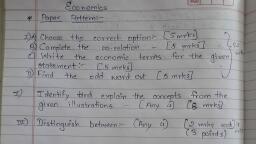 Economics
* Paper Pattern:-
I) A) Choose the correct option:- [5 mrks]
B) Complete the co-relation - [5 mrks]
C) Write the economic terms for the given
statement:- [5 mrks]
D) Find the odd word out [5 mrks]
II) Identify and explain the concepts from the
given illustrations:- (Any 3) [6 mrks]
III) Distinguish between:- (Any 3) (2 mrks each)
(3 points)